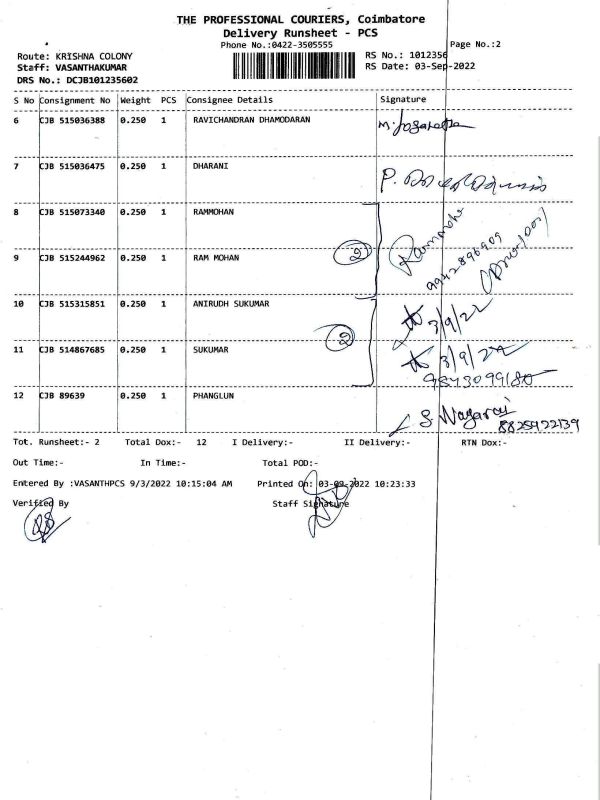 THE PROFESSIONAL COURIERS, Coimbatore
Delivery Runsheet - PCS
Phone No.:0422-3505555
Page No.:2
Route: KRISHNA COLONY
RS No.: 1012356
Staff: VASANTHAKUMAR
RS Date: 03-Sep-2022
DRS No.: DCJB101235602
S No Consignment No Weight PCS Consignee Details Signature
6 CJB 515036388 0.250 1 RAVICHANDRAN DHAMODARAN
7 CJB 515036475 0.250 1 DHARANI
8 CJB 515073340 0.250 1 RAMMOHAN
9 CJB 515244962 0.250 1 RAM MOHAN 2
9942896909
10 CJB 515315851 0.250 1 ANIRUDH SUKUMAR 3/9/22
2
11 CJB 514867685 0.250 1 SUKUMAR 3/9/22
9843099180
12 CJB 89639 0.250 1 PHANGLUN S. Nagaraj
8825922139
Tot. Runsheet:- 2 Total Dox:- 12 I Delivery:- II Delivery:- RTN Dox:-
Out Time:- In Time:- Total POD:-
Entered By :VASANTHPCS 9/3/2022 10:15:04 AM Printed On: 03-09-2022 10:23:33
Verified By Staff Signature